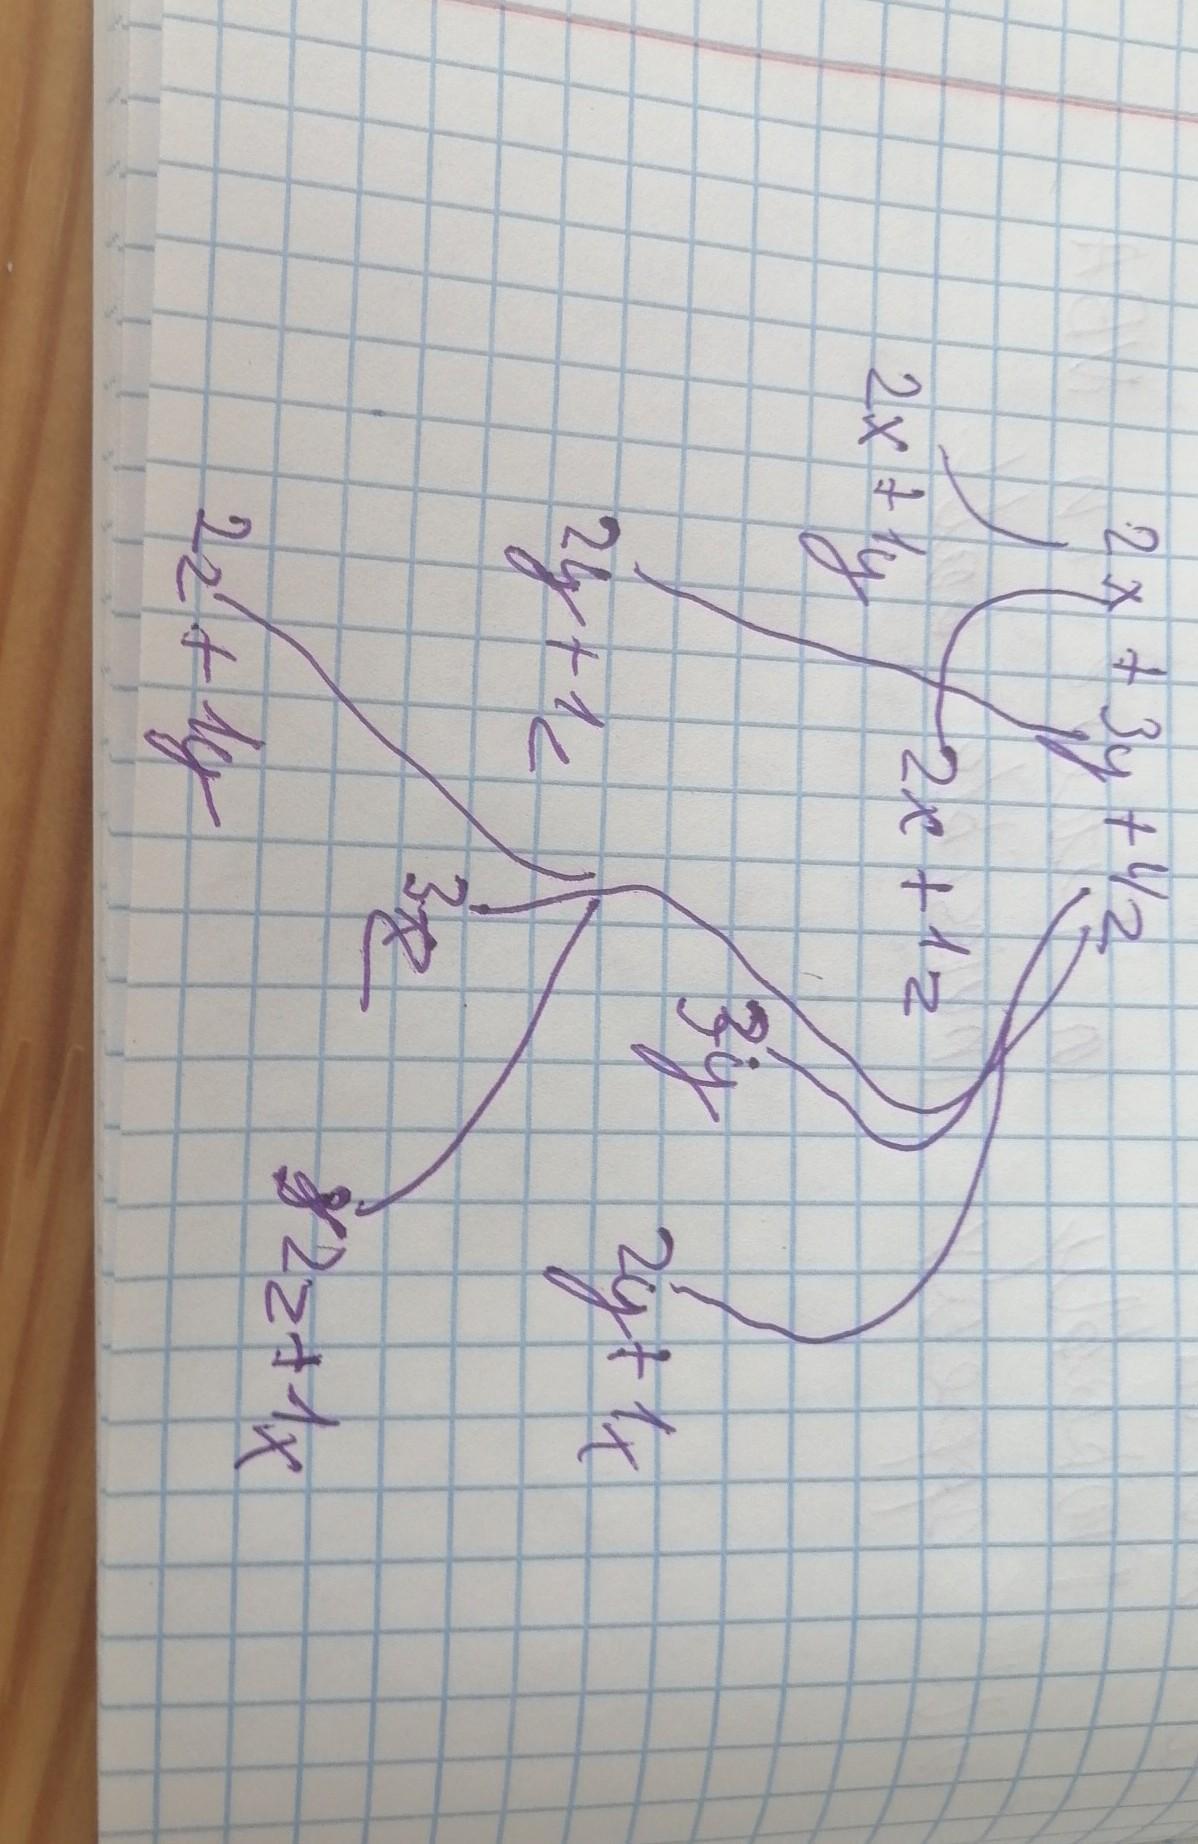 2x + 3y + 4z
2x + 1y
2x + 1z
2y + 1z
3y
2y + 1x
3z
2z + 1y
2z + 1x